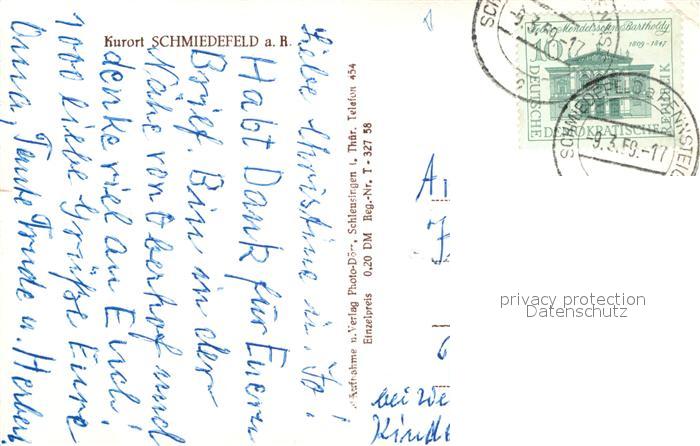 Kurort SCHMIEDEFELD a. R.
Liebe Christine u. Jo!
Habt Dank für Euern
Brief. Bin in der
Nähe von Oberhof und
denke viel an Euch!
1000 liebe Grüße Eure
Oma, Tante Trude u. Herbert
Aufnahme u. Verlag Photo-Dörr, Schleusingen i. Thür. Telefon 454
Einzelpreis 0.20 DM Reg.-Nr. T - 327 58
Felix Mendelssohn Bartholdy
1809-1847
10
DEUTSCHE
DEMOKRATISCHE
REPUBLIK
-9.3.59.-17
SCHMIEDEFELD a. RENNSTEIG
-9.3.59.-17
bei We
Kinde
privacy protection
Datenschutz